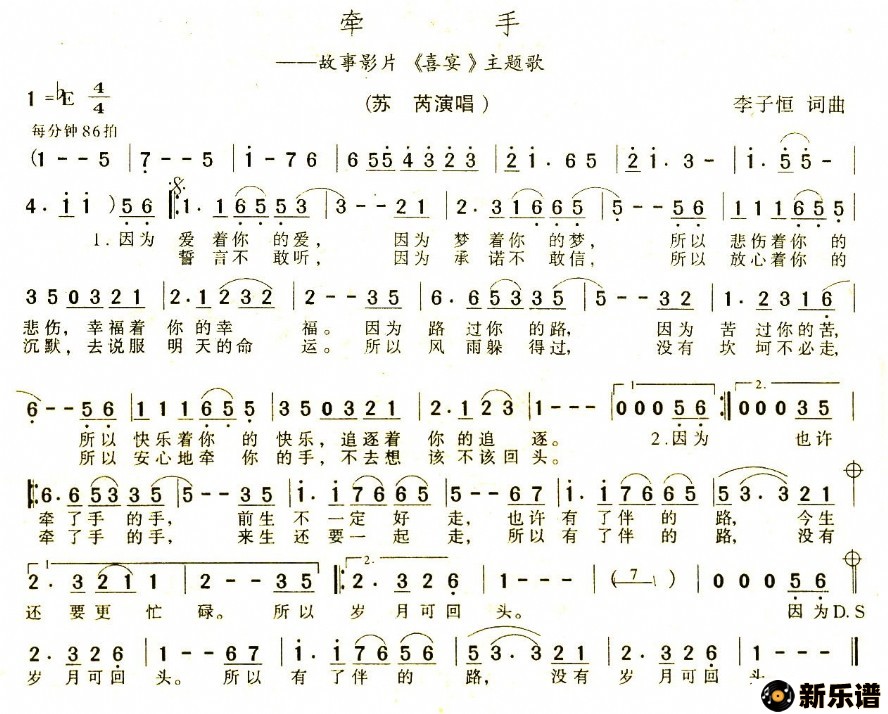 牵 手
——故事影片《喜宴》主题歌
1=♭E 4/4 (苏 芮演唱) 李子恒 词曲
每分钟86拍
(1 - - 5 | 7· - - 5 | 1 - 7 6 | 6 5 5 4 3 2 3 | 2 1· 6 5 | 2 1· 3 - | 1· 5 5 - |
4· i i ) 5 6 |: 1· 1 6 5 5 3 | 3 - - 2 1 | 2· 3 1 6 6 5 | 5 - - 5 6 | 1 1 1 6 5 5 |
1.因为 爱着你 的爱， 因为 梦着你的梦， 所以 悲伤着你的
誓言不 敢听， 因为 承诺不敢信， 所以 放心着你的
3 5 0 3 2 1 | 2· 1 2 3 2 | 2 - - 3 5 | 6· 6 5 3 3 5 | 5 - - 3 2 | 1· 2 3 1 6 |
悲伤，幸福着 你的幸 福。 因为 路过你 的路， 因为 苦过你的苦，
沉默，去说服 明天的命 运。所以 风雨躲 得过， 没有 坎坷不必走，
6 - - 5 6 | 1 1 1 6 5 5 | 3 5 0 3 2 1 | 2· 1 2 3 | 1 - - - | 1 0 0 0 5 6 :| 2. 0 0 0 3 5 |
所以 快乐着你 的快乐，追逐着 你的追 逐。 2.因为 也许
所以 安心地牵 你的手，不去想 该不该回头。
|: 6· 6 5 3 3 5 | 5 - - 3 5 | i· i 7 6 6 5 | 5 - - 6 7 | i· i 7 6 6 5 | 5 3· 3 2 1 |
牵了手 的手， 前生 不一定 好走，也许有了伴的路， 今生
牵了手 的手， 来生 还要一 起走，所以有了伴的路， 没有
1 2· 3 2 1 1 | 2 - - 3 5 :| 2. 2· 3 2 6 | 1 - - - | ( 7 ) | 0 0 0 5 6 |
还要更 忙 碌。 所以 岁月可回 头。 因为D.S
2· 3 2 6 | 1 - - 6 7 | i· i 7 6 5 6 | 5 3· 3 2 1 | 2· 3 2 6 | 1 - - - ‖
岁月可回 头。所以 有了伴的 路， 没有 岁月可回 头
新乐谱